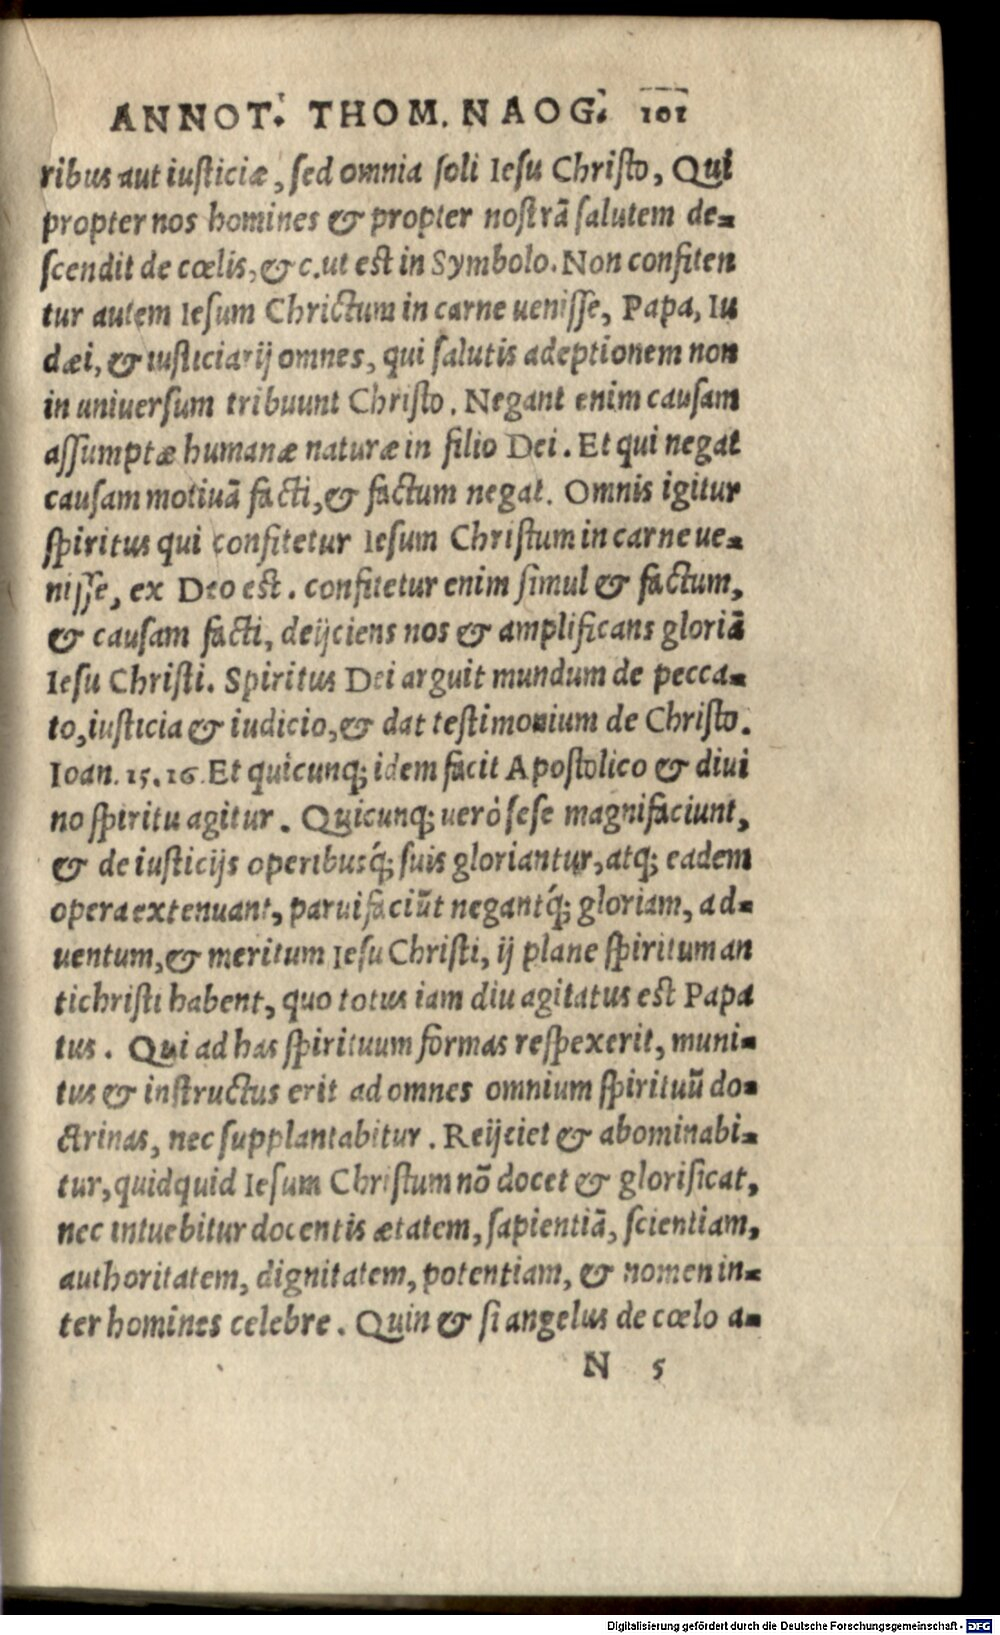 ANNOT. THOM. NAOG. 101
ribus aut iusticiæ, sed omnia soli Iesu Christo, Qui
propter nos homines & propter nostrā salutem de-
scendit de cœlis, & c. ut est in Symbolo. Non confiten
tur autem Iesum Chrictum in carne uenisse, Papa, Iu
dæi, & iusticiarij omnes, qui salutis adeptionem non
in uniuersum tribuunt Christo. Negant enim causam
assumptæ humanæ naturæ in filio Dei. Et qui negat
causam motiuā facti, & factum negat. Omnis igitur
spiritus qui confitetur Iesum Christum in carne ue-
nisse, ex Deo est. confitetur enim simul & factum,
& causam facti, deijciens nos & amplificans gloriā
Iesu Christi. Spiritus Dei arguit mundum de pecca-
to, iusticia & iudicio, & dat testimonium de Christo.
Ioan. 15. 16. Et quicunq; idem facit Apostolico & diui
no spiritu agitur. Quicunq; uerò sese magnifaciunt,
& de iusticijs operibusq́; suis gloriantur, atq; eadem
opera extenuant, paruifaciūt negantq́; gloriam, ad-
uentum, & meritum Iesu Christi, ij plane spiritum an
tichristi habent, quo totus iam diu agitatus est Papa
tus. Qui ad has spirituum formas respexerit, muni-
tus & instructus erit ad omnes omnium spirituū do-
ctrinas, nec supplantabitur. Reijciet & abominabi-
tur, quidquid Iesum Christum nō docet & glorificat,
nec intuebitur docentis ætatem, sapientiā, scientiam,
authoritatem, dignitatem, potentiam, & nomen in-
ter homines celebre. Quin & si angelus de cœlo a-
N 5
Digitalisierung gefördert durch die Deutsche Forschungsgemeinschaft - DFG